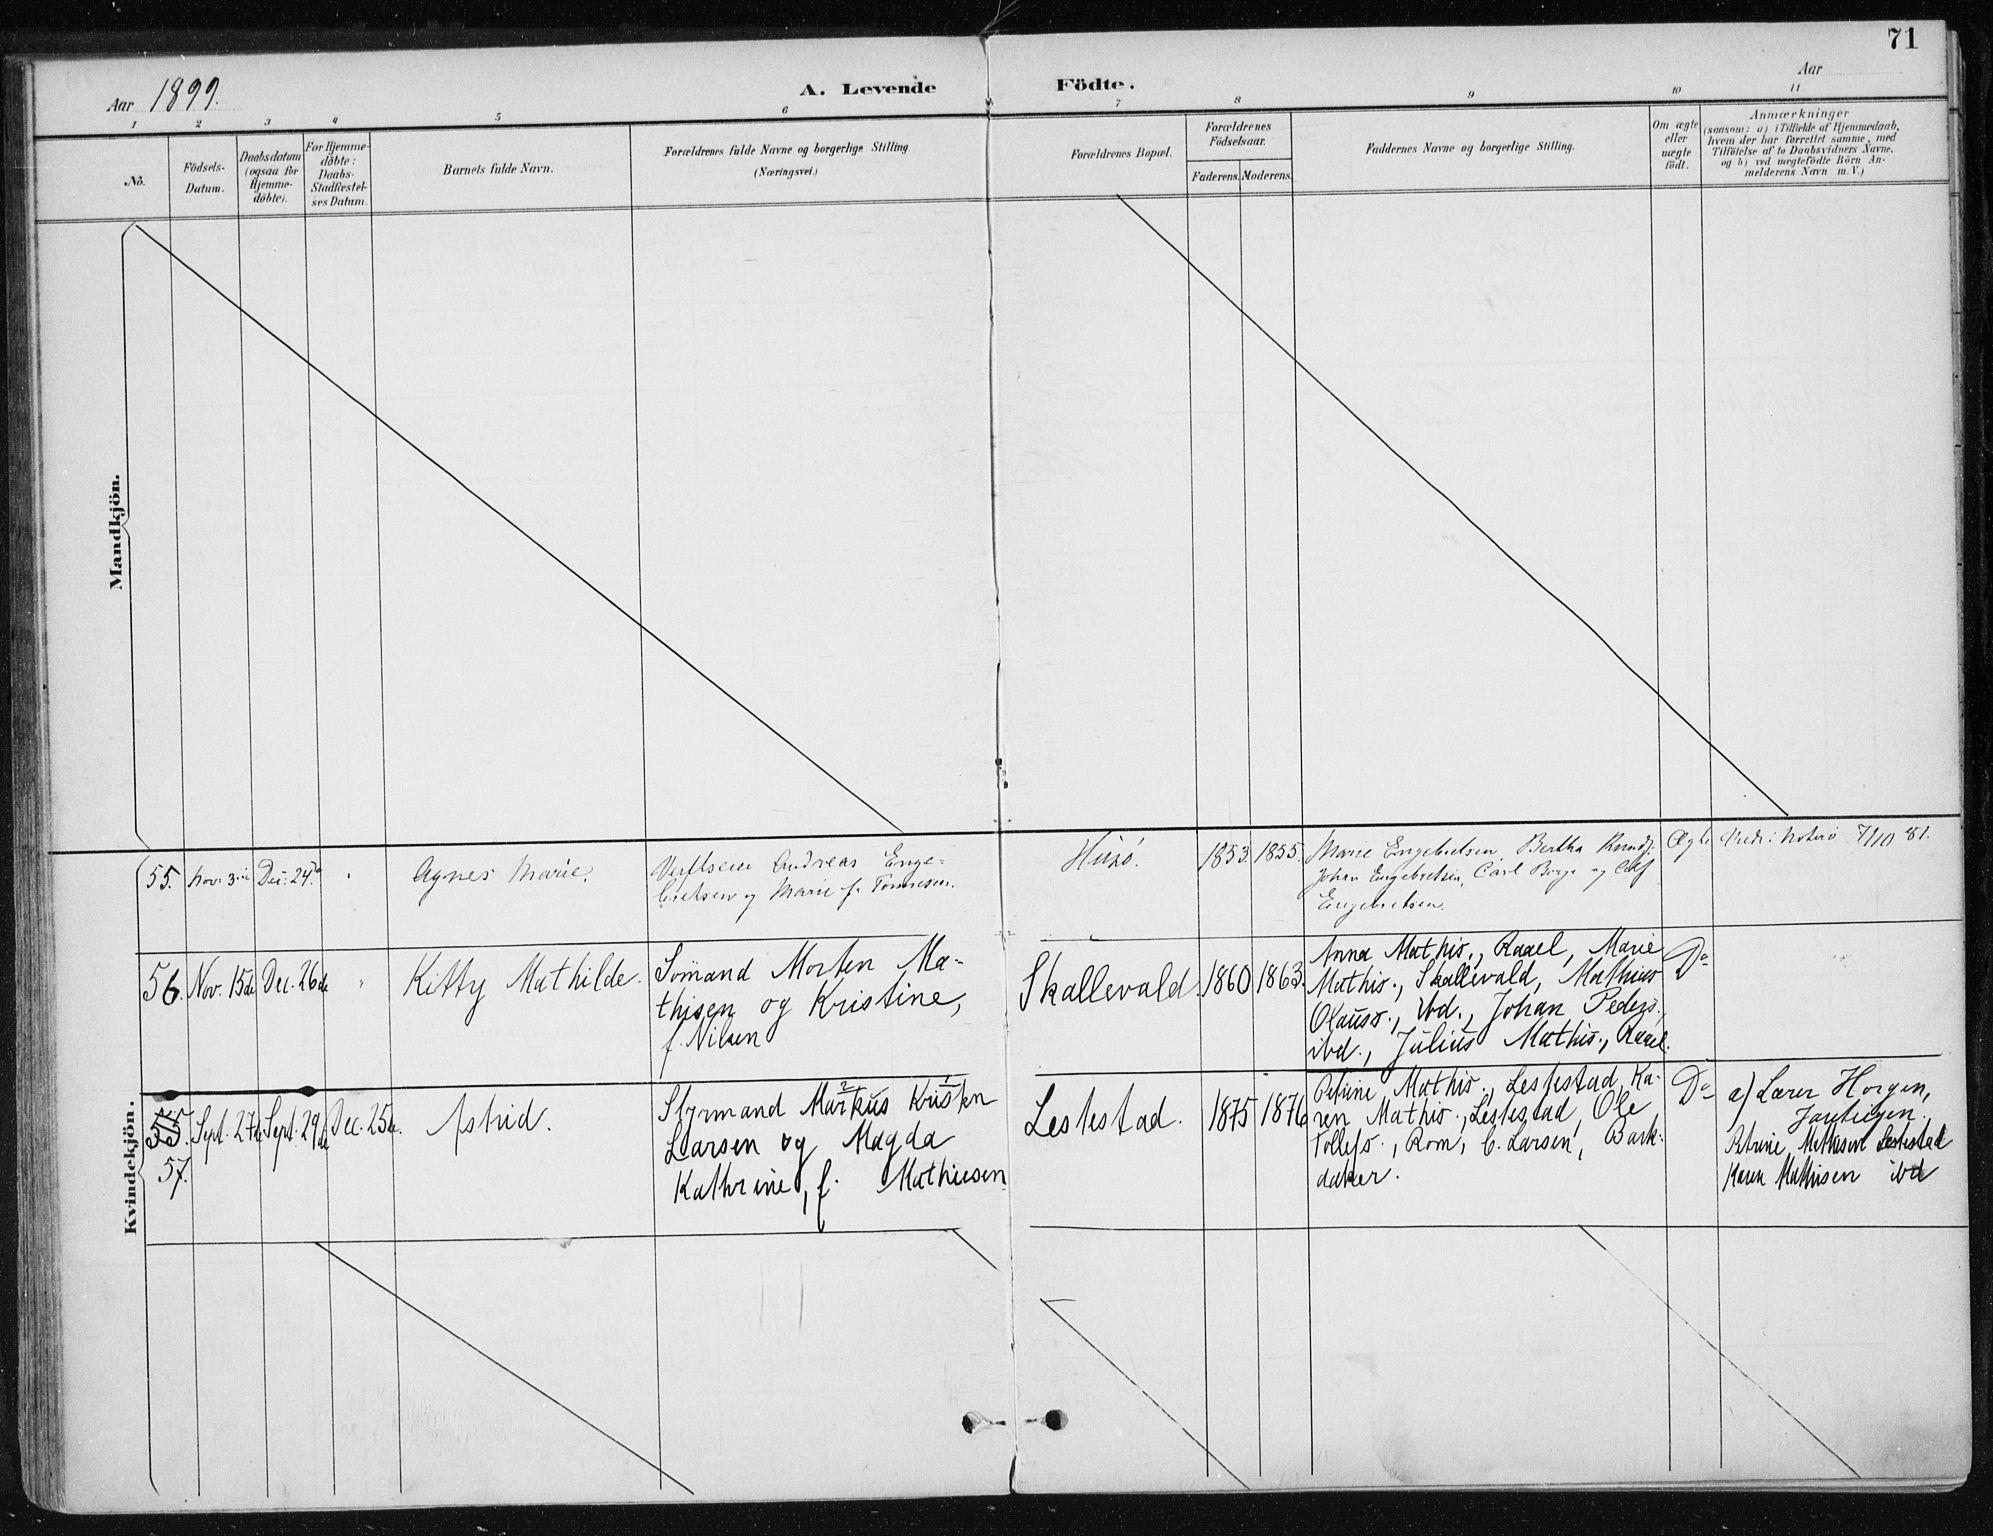 71
Aar 1899.
A. Levende Födte.
Aar
1 2 3 4 5 6 7 8 9 10 11
No.
Födsels-
Datum.
Daabsdatum
(ogsaa for
Hjemme-
döbte).
For Hjemme-
döbte:
Daabs-
Stadfæstel-
ses Datum.
Barnets fulde Navn.
Forældrenes fulde Navne og borgerlige Stilling
(Næringsvei.)
Forældrenes Bopæl.
Forældrenes
Födselsaar.
Faderens. Moderens.
Faddernes Navne og borgerlige Stilling.
Om ægte
eller
uægte
födt.
Anmærkninger
(saasom: a) i Tilfælde af Hjemmedaab,
hvem der har forrettet samme, med
Tilföielse af to Daabsvidners Navne,
og b) ved uægtefödte Börn An-
melderens Navn m. V.)
Mandkjön.
Kvindekjön.
55. Nov. 3die Dec. 24de " Agnes Marie.
Verftseier Andreas Enge-
bretsen og Marie f. Tönnesen.
Husö. 1853. 1855.
Marie Engebretsen, Bertha
Johan Engebretsen, Carl Borge og
Engebretsen.
Ægte Nöterö 7/10 81.
56. Nov. 15de Dec. 26de " Kitty Mathilde.
Sömand Morten Ma-
thisen og Kristine,
f. Nilsen
Skallevald. 1860 1863.
Anna Mathis., Raael, Marie
Mathis., Skallevald, Mathius
Olauss., ibd., Johan Peders.,
ibd., Julius Mathis., Raael.
Do
55
57. Sept. 27de Sept. 29de Dec. 25de. Astrid.
Styrmand Markus Kristen
Larsen og Magda
Kathrine, f. Mathiesen
2 1
Lestestad. 1875 1876
Petrine Mathis., Lestestad, Ka-
ren Mathis., Lestestad, Ole
Tollefs., Rom, C. Larsen, Bark-
daker.
Do
a) Lærer Horgen,
Petrine Mathisen Lestestad
Karen Mathisen ibd